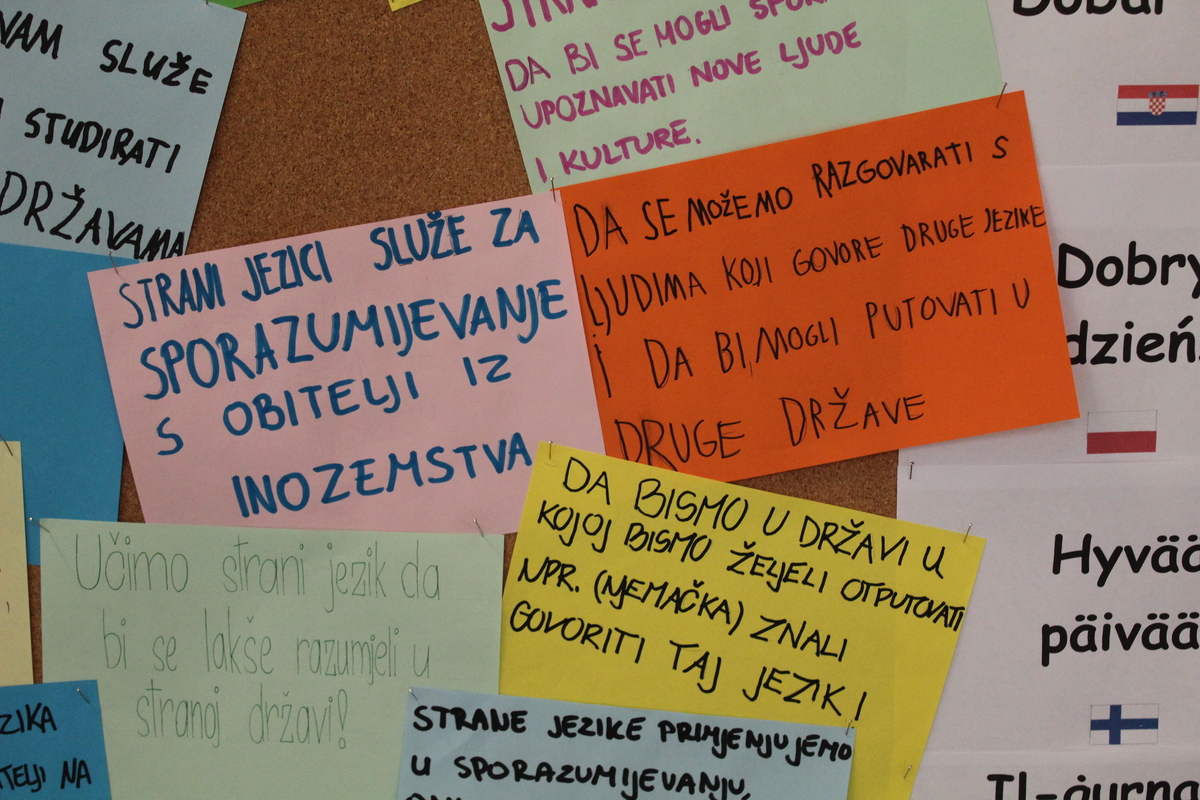 VAM SLUŽE
STUDIRATI
DRŽAVAMA
DA BI SE MOGLI
UPOZNAVATI NOVE LJUDE
I KULTURE.
Dobar
STRANI JEZICI SLUŽE ZA
SPORAZUMIJEVANJE
S OBITELJI IZ
INOZEMSTVA
DA SE MOŽEMO RAZGOVARATI S
LJUDIMA KOJI GOVORE DRUGE JEZIKE
I DA BI MOGLI PUTOVATI U
DRUGE DRŽAVE
Dobry
dzień
Učimo strani jezik da
bi se lakše razumjeli u
stranoj državi!
DA BISMO U DRŽAVI U
KOJOJ BISMO ŽELJELI OTPUTOVATI
NPR. (NJEMAČKA) ZNALI
GOVORITI TAJ JEZIK!
Hyvää
päivää
ZIKA
TELJI NA
STRANE JEZIKE PRIMJENJUJEMO
U SPORAZUMIJEVANJU,
Il-ġurna